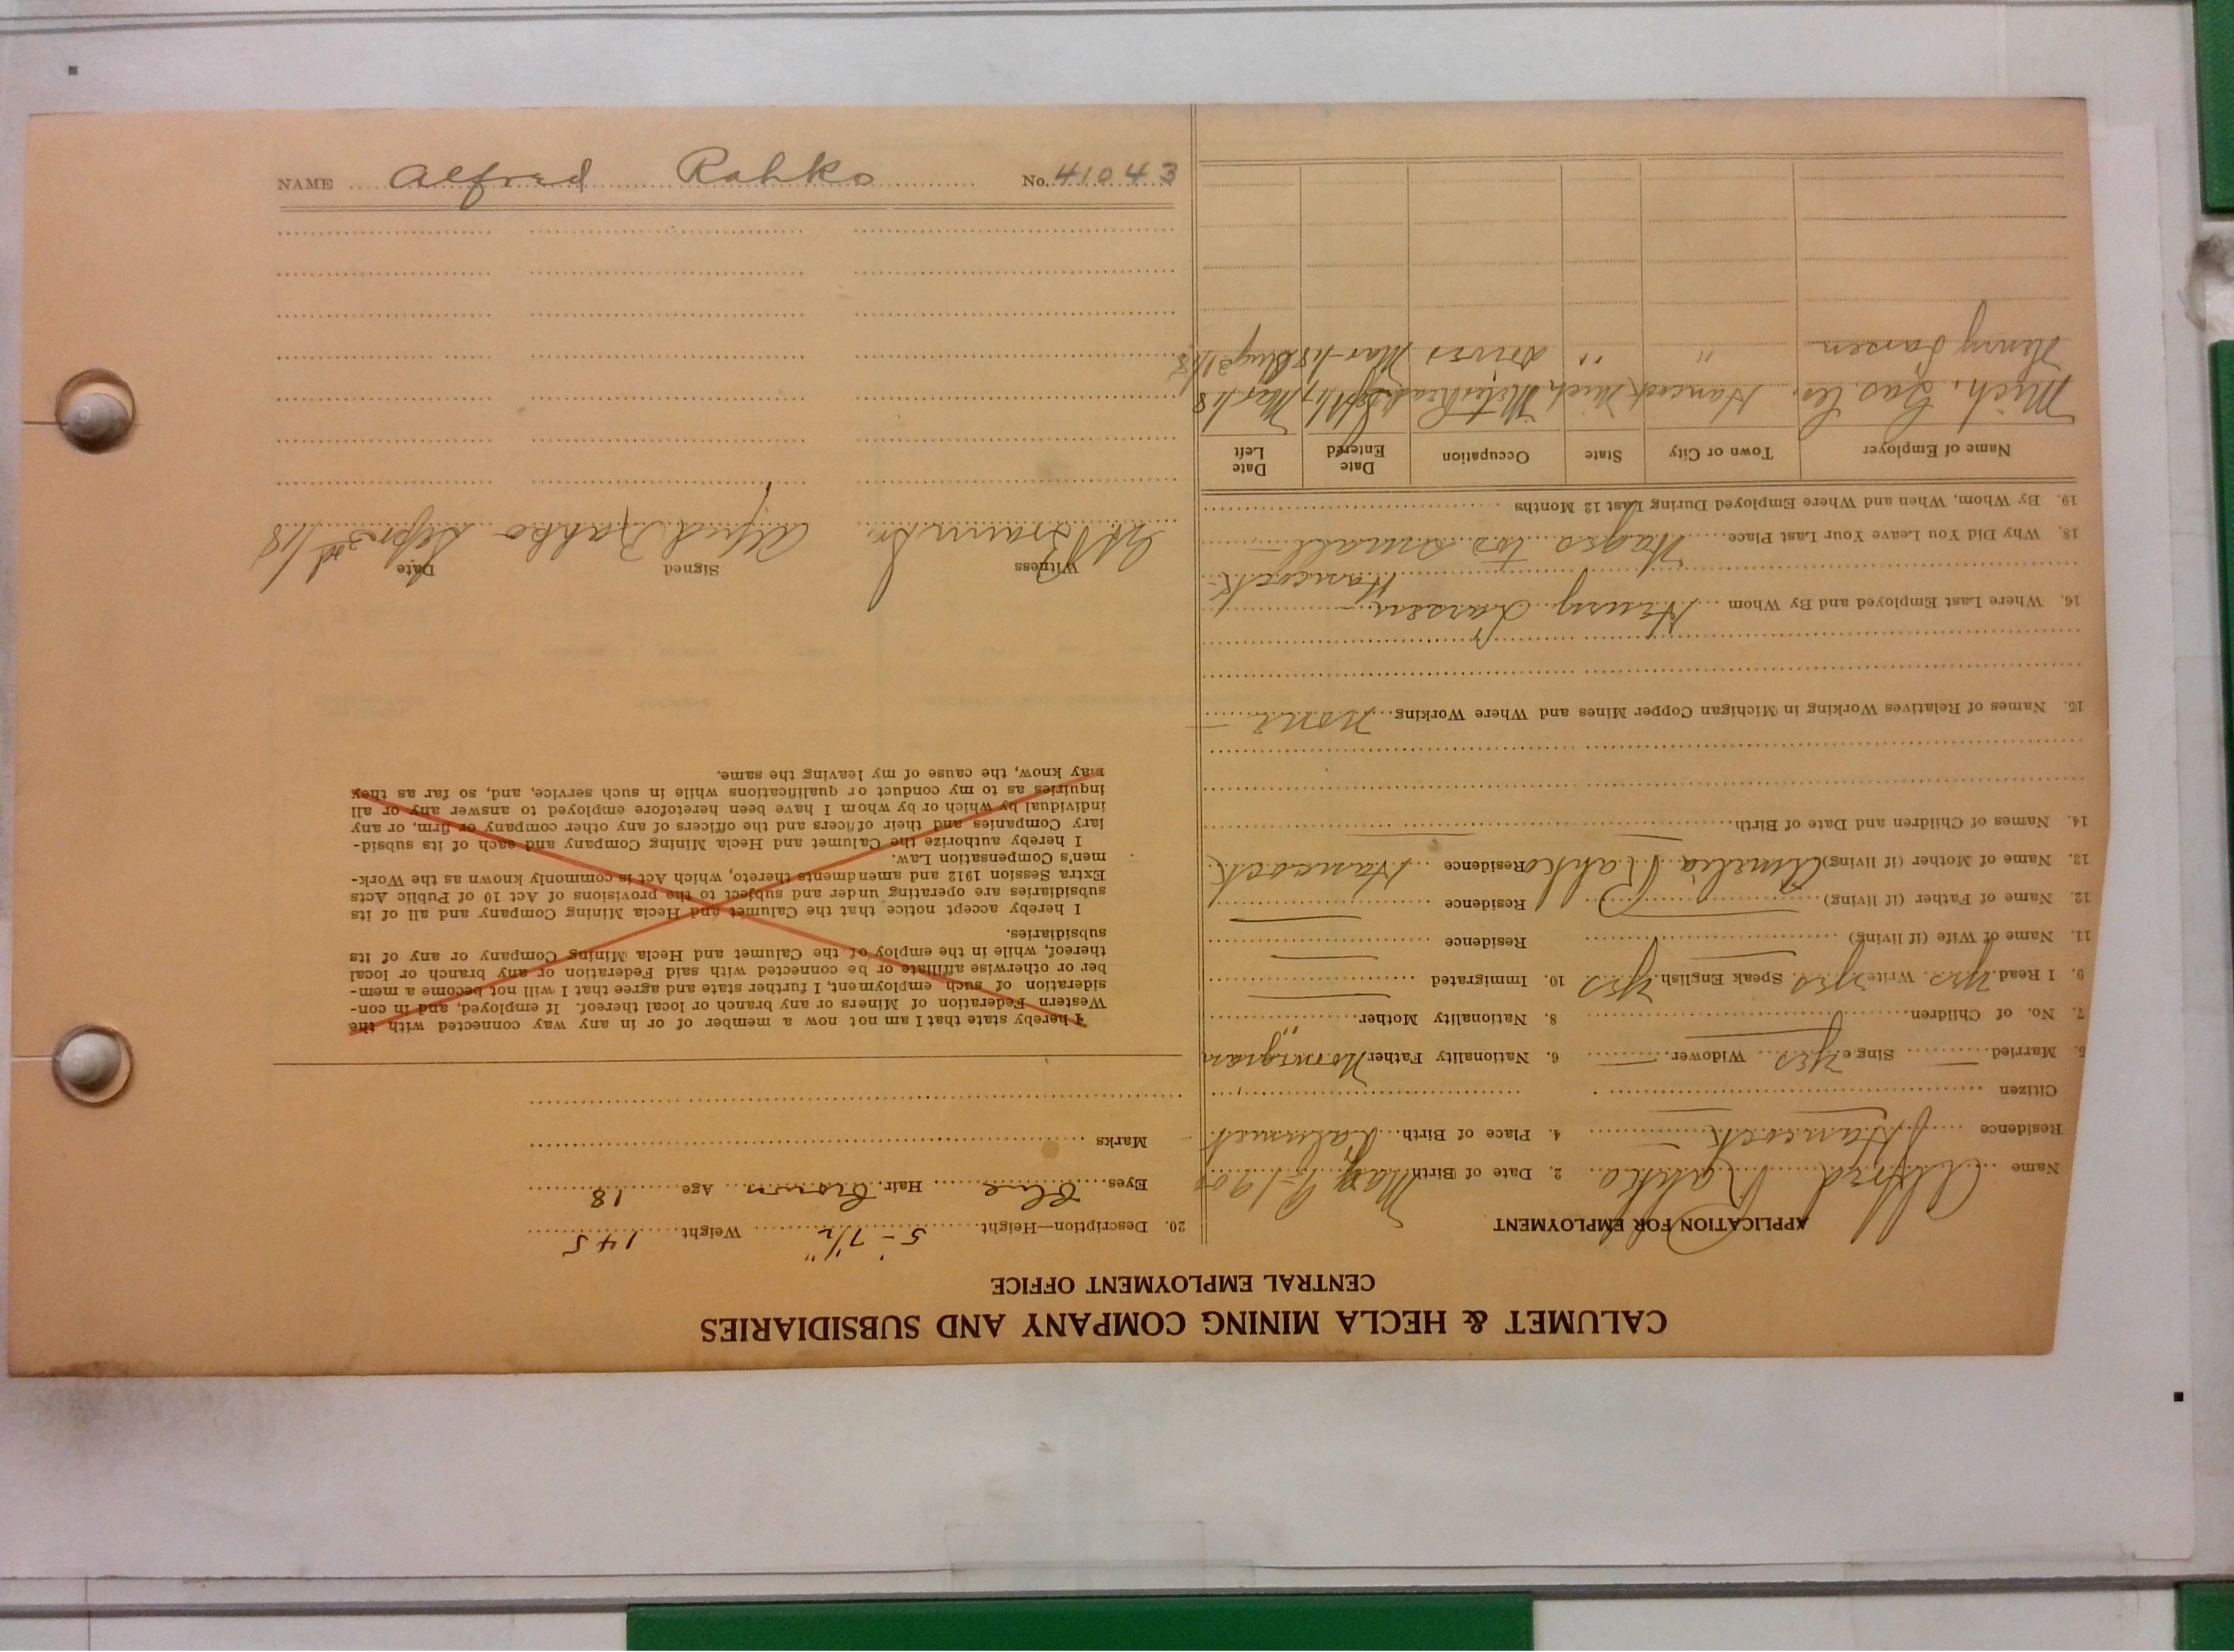 CALUMET & HECLA MINING COMPANY AND SUBSIDIARIES
CENTRAL EMPLOYMENT OFFICE
APPLICATION FOR EMPLOYMENT
Name Alfred Rahko 2. Date of Birth May 9-1900
Residence Hancock 4. Place of Birth Calumet
Citizen
5. Married Single yes Widower 6. Nationality Father Norwegian
7. No. of Children 8. Nationality Mother "
9. I Read yes Write yes Speak English yes 10. Immigrated
11. Name of Wife (if living) Residence
12. Name of Father (if living) Residence
13. Name of Mother (if living) Amelia Rahko Residence Hancock
14. Names of Children and Date of Birth
15. Names of Relatives Working in Michigan Copper Mines and Where Working none
16. Where Last Employed and By Whom Henry Larsen
Hancock
18. Why Did You Leave Your Last Place Wages too small
19. By Whom, When and Where Employed During Last 12 Months
Name of Employer Town or City State Occupation Date Entered Date Left
Mich. Gas Co. Hancock Mich Meter Reader Sept 17 Mar 18
Henry Larsen " " Driver Mar 18 Aug 31/18
20. Description—Height 5-7 1/2" Weight 145
Eyes Blue Hair Brown Age 18
Marks
I hereby state that I am not now a member of or in any way connected with the
Western Federation of Miners or any branch or local thereof. If employed, and in con-
sideration of such employment, I further state and agree that I will not become a mem-
ber or otherwise affiliate or be connected with said Federation or any branch or local
thereof, while in the employ of the Calumet and Hecla Mining Company or any of its
subsidiaries.
I hereby accept notice that the Calumet and Hecla Mining Company and all of its
subsidiaries are operating under and subject to the provisions of Act 10 of Public Acts
Extra Session 1912 and amendments thereto, which Act is commonly known as the Work-
men's Compensation Law.
I hereby authorize the Calumet and Hecla Mining Company and each of its subsid-
iary Companies and their officers and the officers of any other company or firm, or any
individual by which or by whom I have been heretofore employed to answer any or all
inquiries as to my conduct or qualifications while in such service, and, so far as they
may know, the cause of my leaving the same.
Witness Signed Date
Alfred Rahko Sept 3rd/18
NAME Alfred Rahko No. 41043